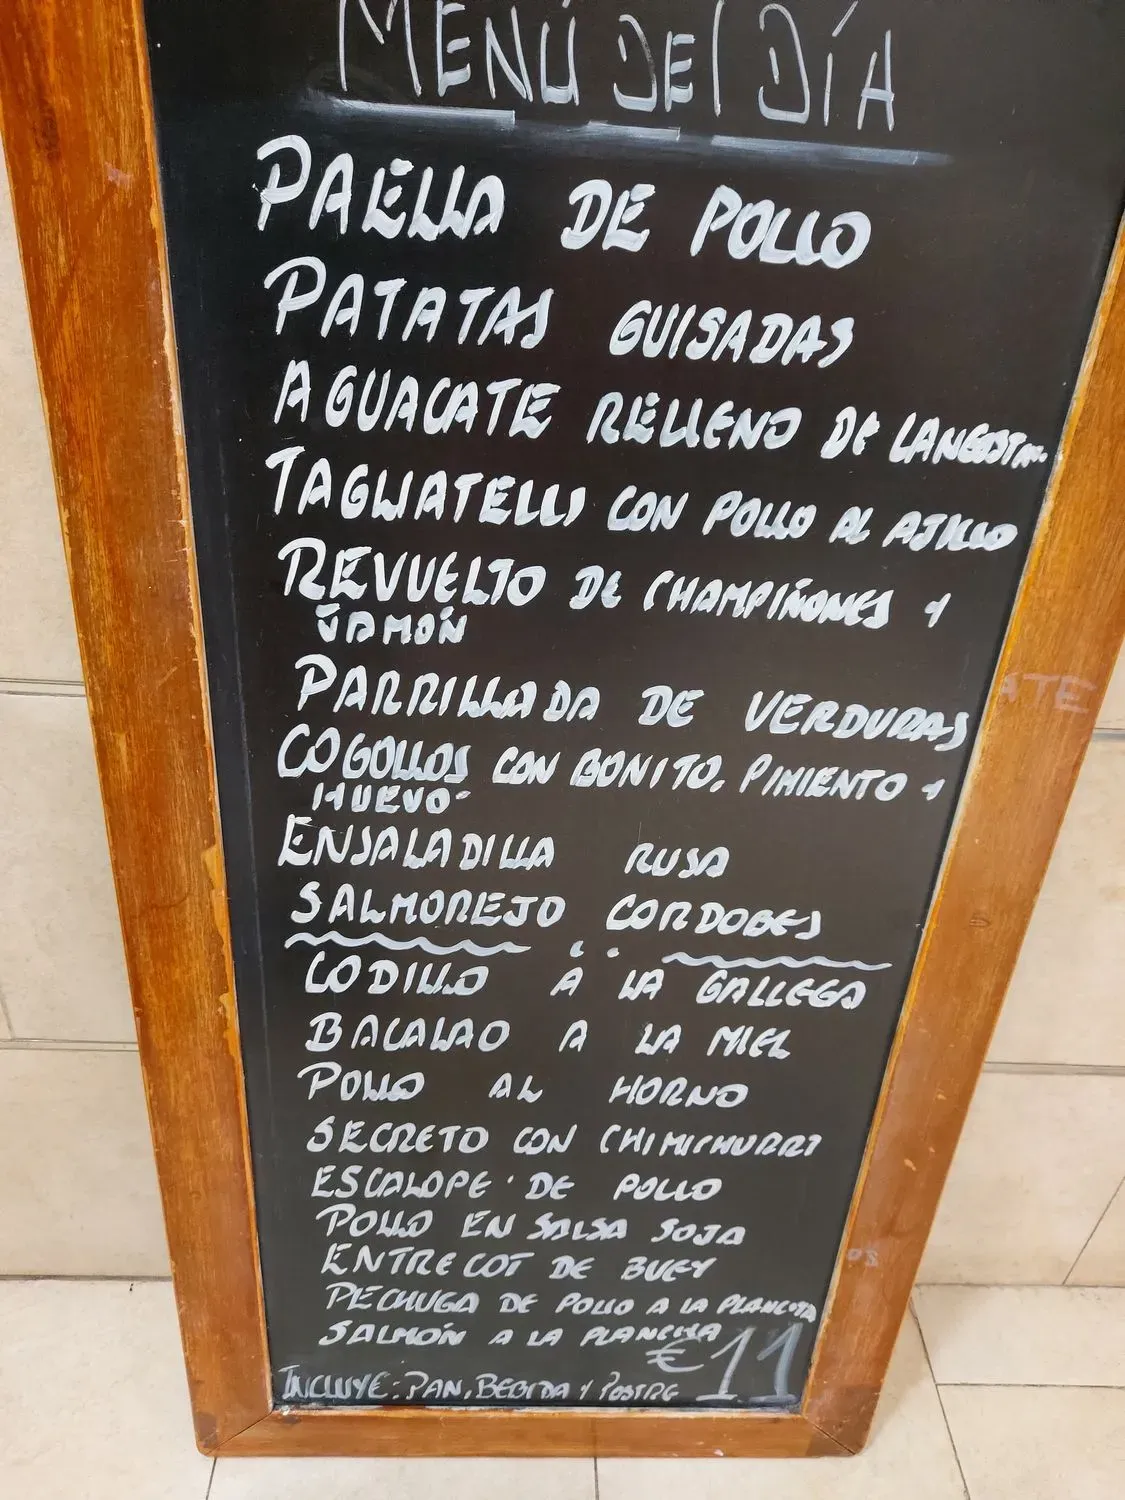 MENÚ DEL DÍA
PAELLA DE POLLO
PATATAS GUISADAS
AGUACATE RELLENO DE
TAGLIATELLIS CON POLLO AL AJILLO
REVUELTO DE CHAMPIÑONES Y
JAMÓN
PARRILLADA DE VERDURAS
COGOLLOS CON BONITO, PIMIENTO Y
HUEVO
ENSALADILLA RUSA
SALMOREJO CORDOBES
CODILLO A LA GALLEGA
BACALAO A LA MIEL
POLLO AL HORNO
SECRETO CON CHIMICHURRI
ESCALOPE DE POLLO
POLLO EN SALSA SOJA
ENTRECOT DE BUEY
PECHUGA DE POLLO A LA PLANCHA
SALMÓN A LA PLANCHA
€11
INCLUYE: PAN, BEBIDA Y POSTRE